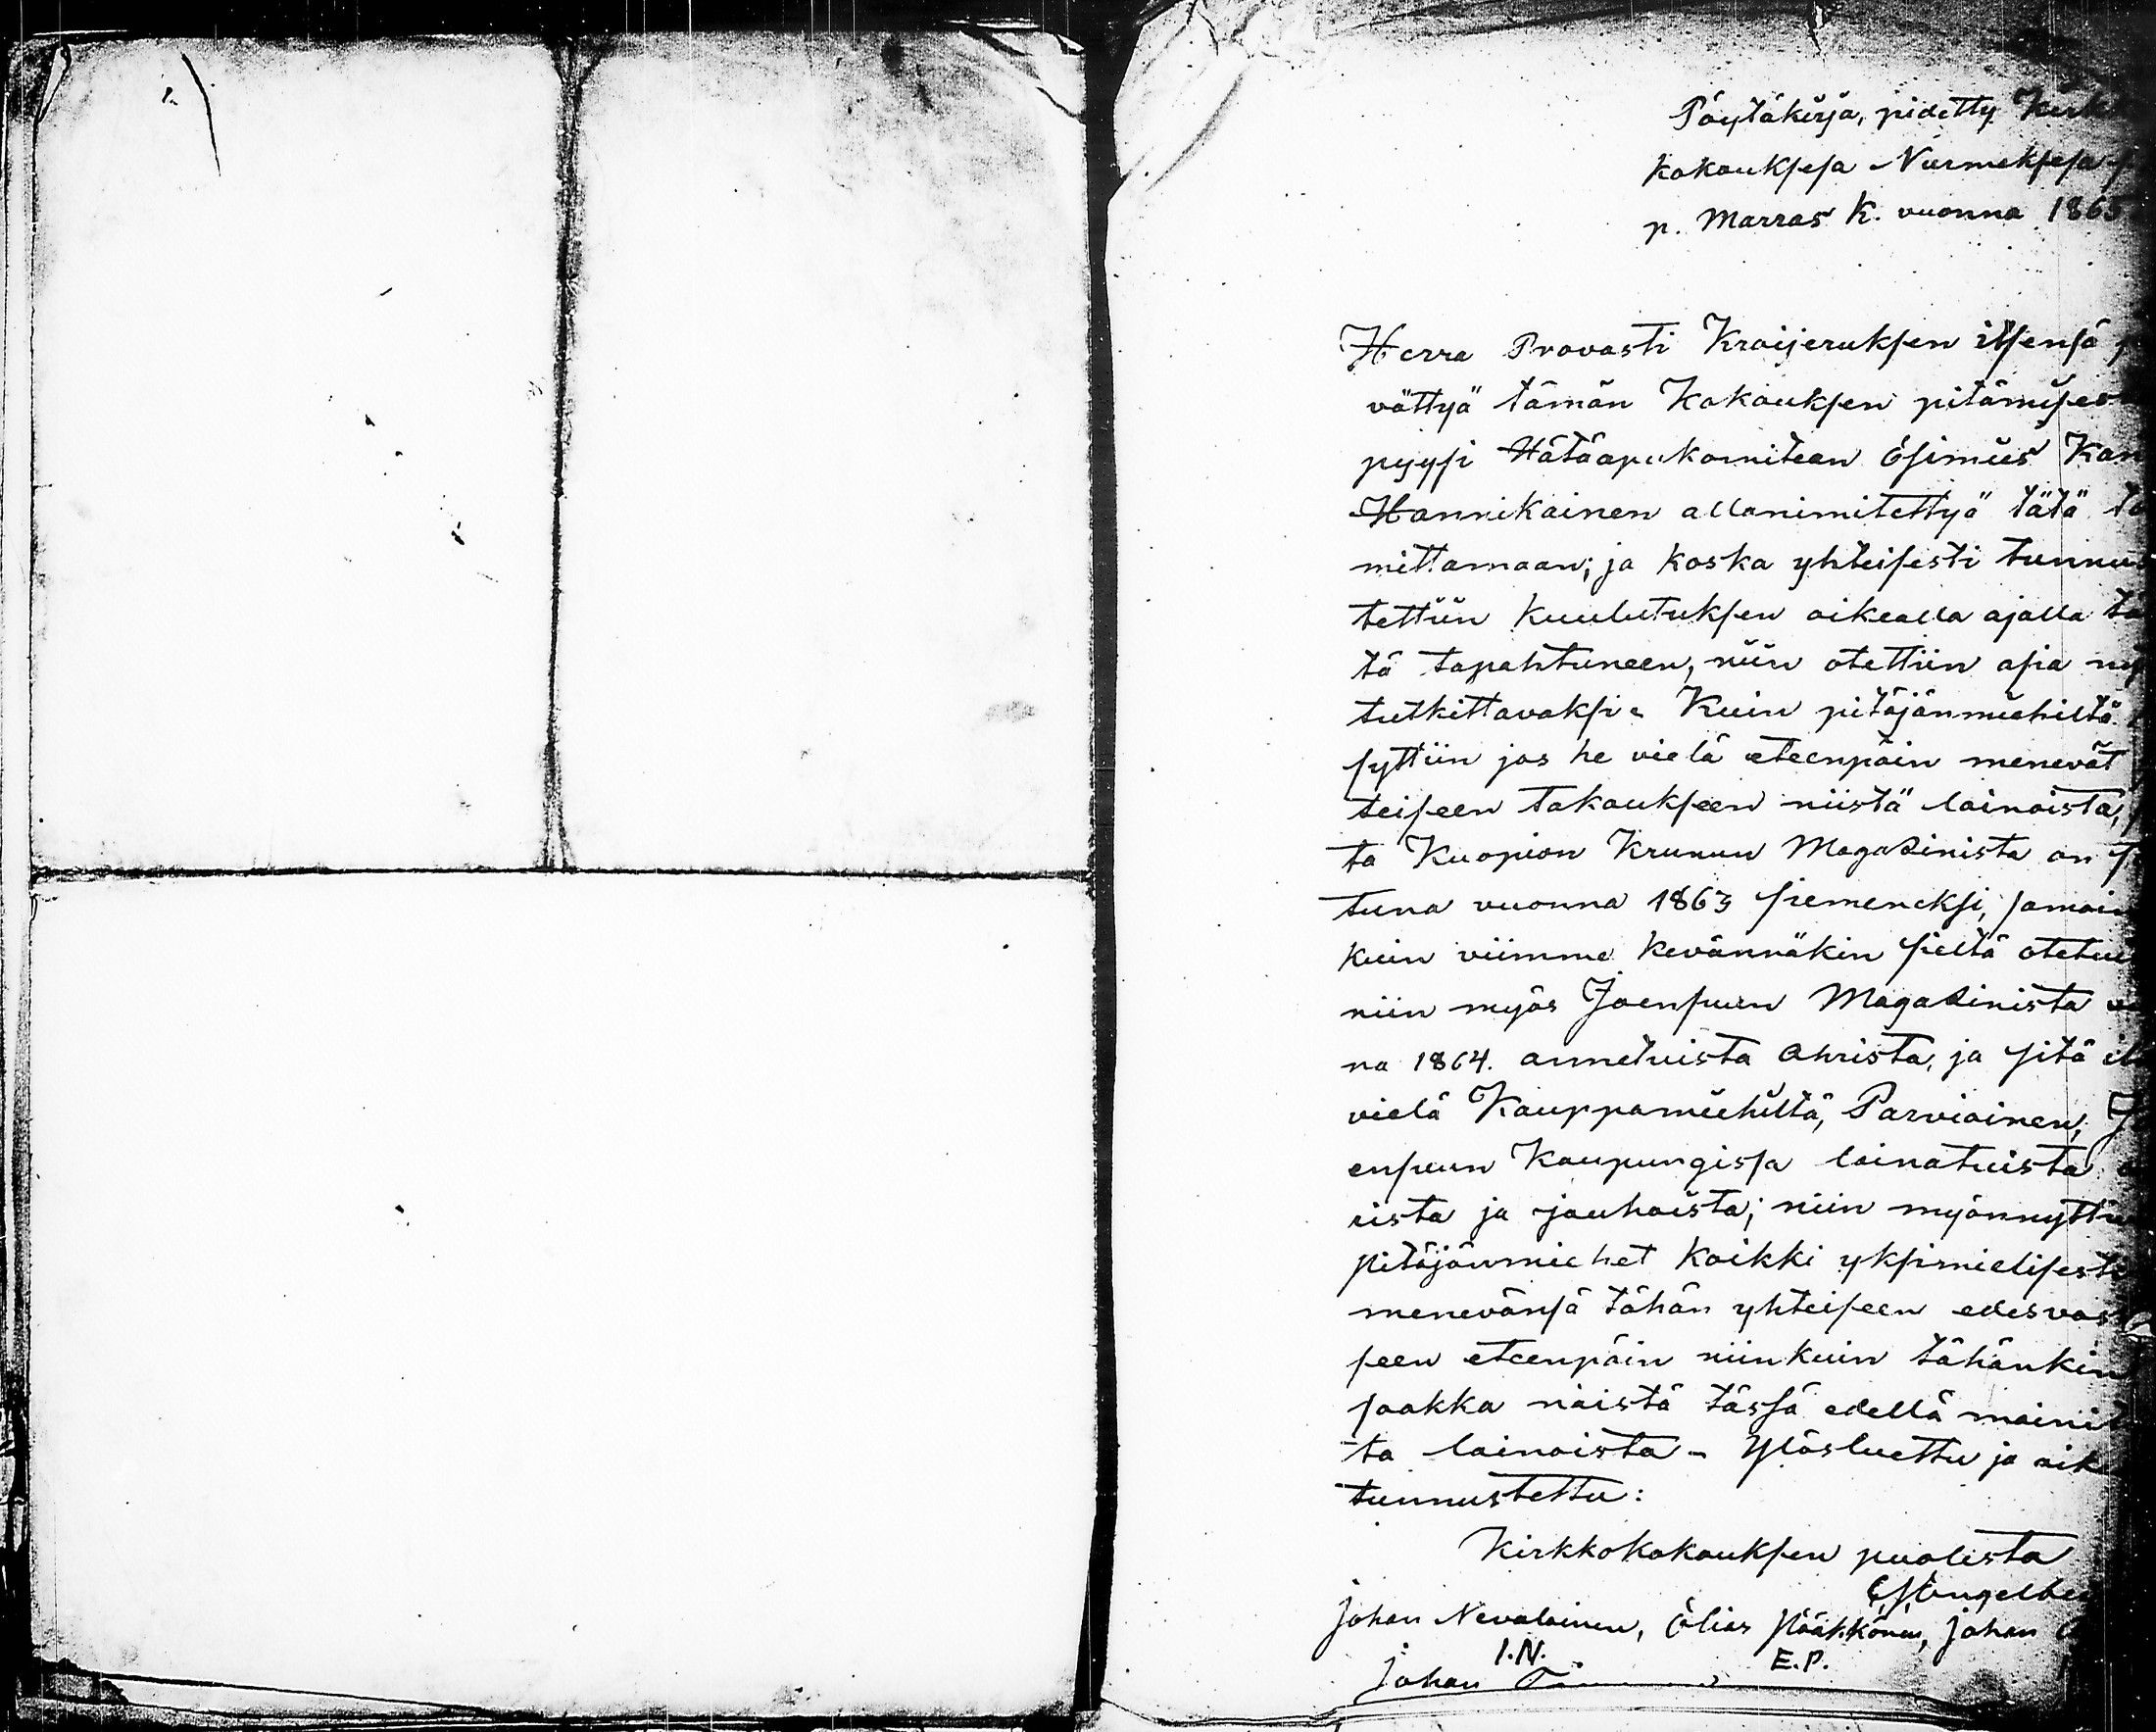 Pöytäkirja, pidetty Kirk
kokouksesa Nurmeksesa
p. Marras K. vuonna 1865
Herra Provasti Kraijeruksen itsensä
vättyä tämän Kokouksen pitämises
pyysi Hätäapukomitean Esimies
Hannikainen allanimitettyä tätä to
mittamaan; ja koska yhteisesti tunnus
tettiin kuulutuksen oikealla ajalla täs
tä tapahtuneen, niin otettiin asia ny
tutkittavaksi. Kuin pitäjänmiehiltä
syttiin jos he vielä eteenpäin menevät
teiseen takaukseen niistä lainoista,
ta Kuopion Krunun Magasinista on
tuna vuonna 1863 siemeneksi, samoin
kuin viimme kevännäkin sieltä otetui
niin myös Joensuun Magasinista
na 1864. annetuista Ohrista, ja sitä
vielä Kauppamiehiltä, Parviainen, Jo
ensuun Kaupungissa lainatuista
rista ja jauhoista; niin myönnyttiin
pitäjänmiehet kaikki yksimielisesti
menevänsä tähän yhteiseen edesvas
seen eteenpäin niinkuin tähänkin
saakka näistä tässä edellä mainit
ta lainoista – Ylösluettu ja oik
tunnustettu:
Kirkkokokouksen puolesta
Johan Nevalainen, Elias Pääkkönen, Johan
I.N. E.P.
Johan